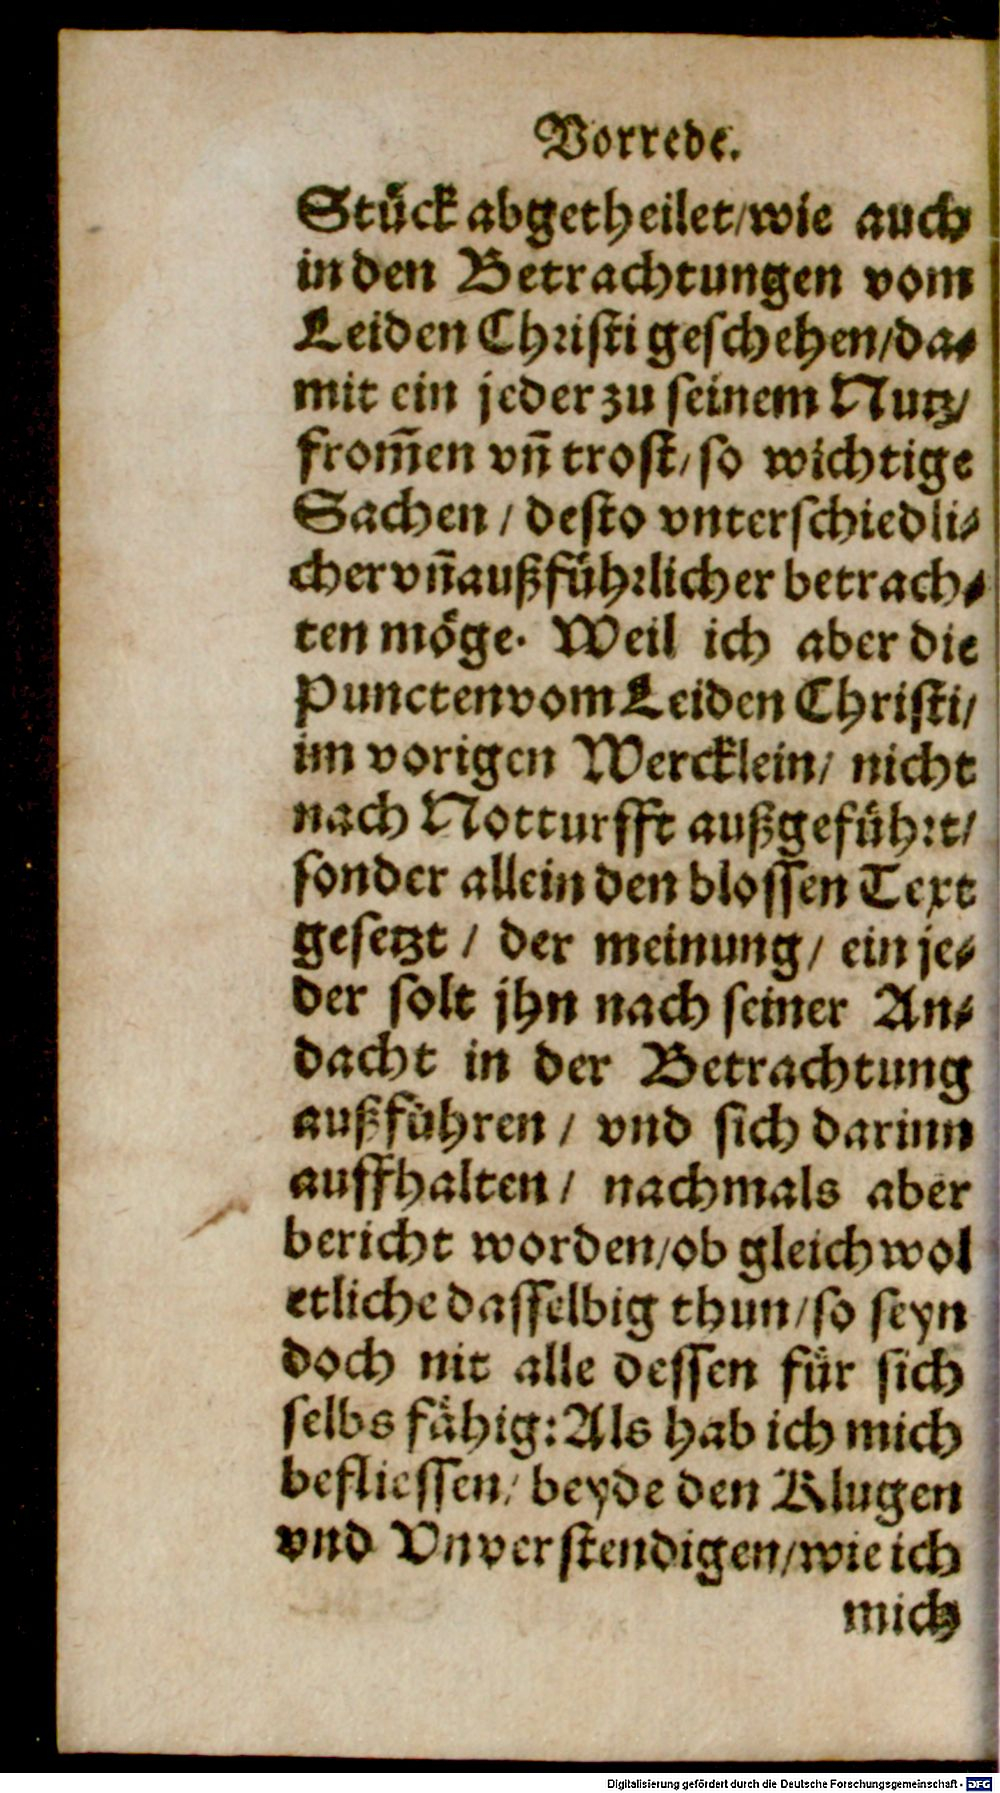 Vorrede.
Stuͤck abgetheilet/wie auch
in den Betrachtungen vom
Leiden Chꝛiſti geſchehen/da⸗
mit ein jeder zu ſeinem Nutz/
from̃en vñ troſt/ſo wichtige
Sachen / deſto vnterſchiedli⸗
cher vñ außfuͤhꝛlicher betrach⸗
ten moͤge. Weil ich aber die
Puncten vom Leiden Chriſti/
im vorigen Wercklein/ nicht
nach Notturfft außgefuͤhꝛt/
ſonder allein den bloſſen Text
geſetzt / der meinung/ ein je⸗
der ſolt jhn nach ſeiner An⸗
dacht in der Betrachtung
außfuͤhren / vnd ſich darinn
auffhalten / nachmals aber
bericht worden/ob gleichwol
etliche daſſelbig thun/ſo ſeyn
doch nit alle deſſen fuͤr ſich
ſelbs faͤhig: Als hab ich mich
beflieſſen/ beyde den Klugen
vnd Vnverſtendigen/wie ich
mich
Digitalisierung gefördert durch die Deutsche Forschungsgemeinschaft - DFG